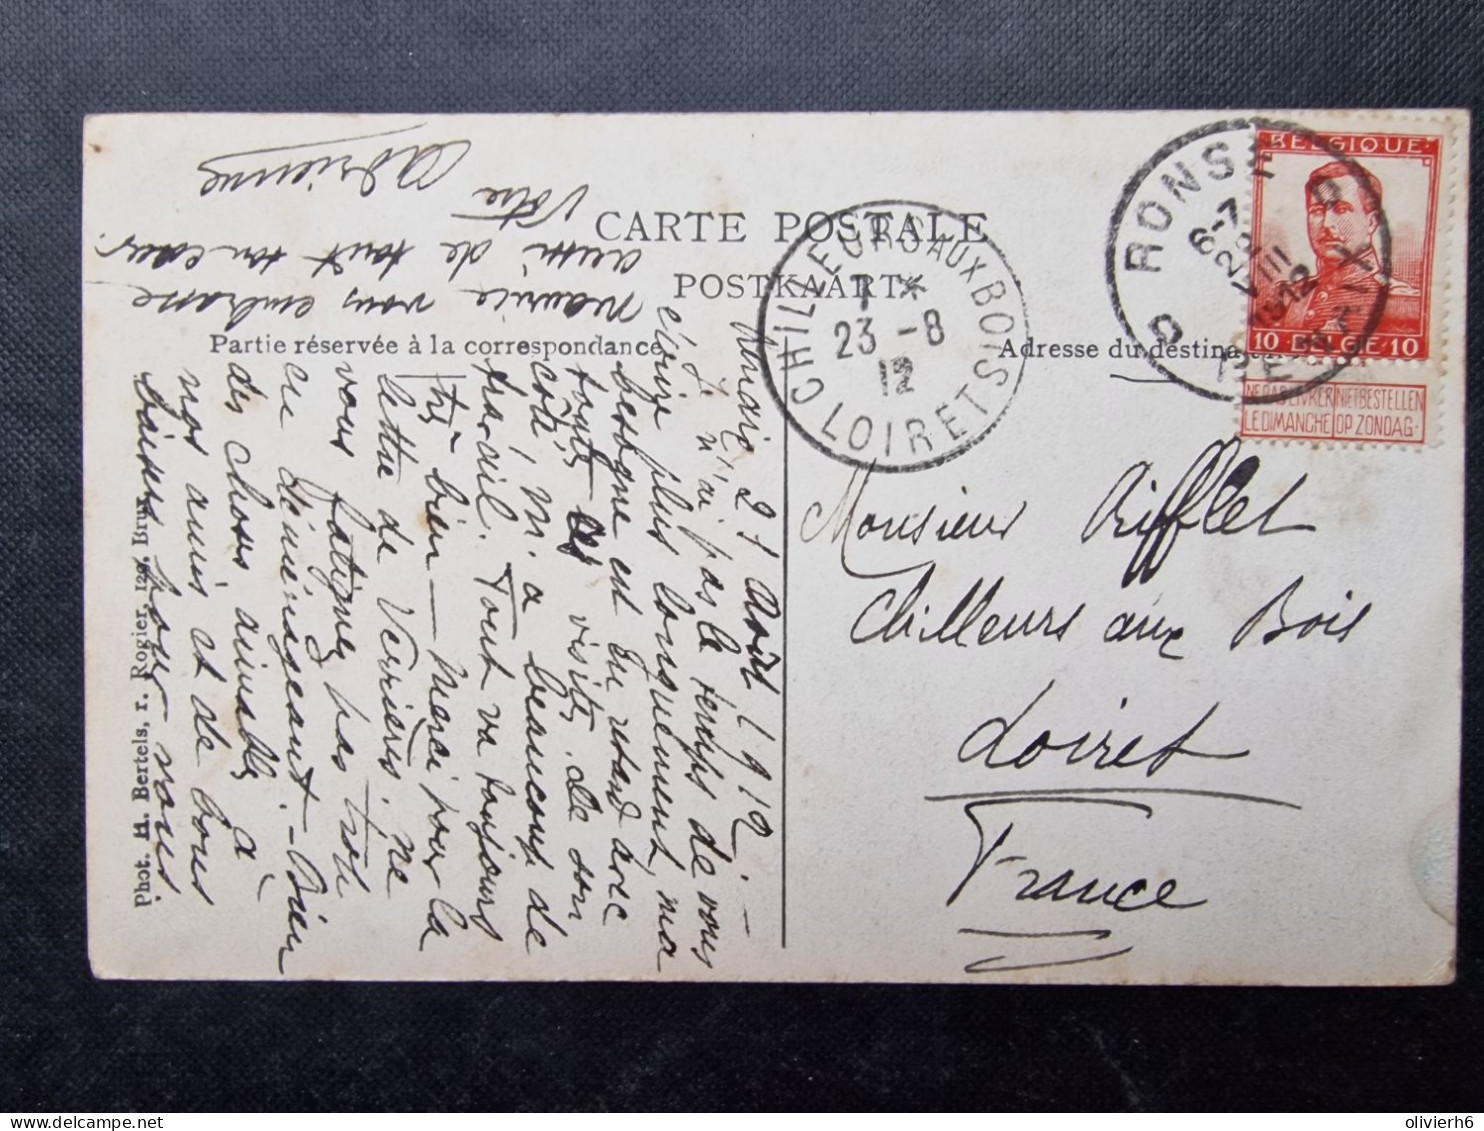 CARTE POSTALE
POSTKAART
Partie réservée à la correspondance
Adresse du destina
Renaix 21 Août 1912.
Je n'ai pas le temps de vous
écrire plus longuement, ma
besogne est en retard avec
toutes les visites. De son
côté M. a beaucoup de
travail. Tout va toujours
très bien — Merci pour la
lettre de Verrières. Ne
vous fatiguez pas trop
en déménageant. — Bien
des choses aimables à
nos amis et de bons
baisers pour vous
Maurice vous embrasse
aussi de tout son cœur.
Votre
Adrienne
Monsieur Rifflet
Chilleurs aux Bois
Loiret
France
BELGIQUE
10 BELGIË 10
NE PAS LIVRER NIET BESTELLEN
LE DIMANCHE OP ZONDAG
RONSE
6-7
VIII
1912
RENAIX
CHILLEURS AUX BOIS
23 -8
12
LOIRET
Phot. H. Bertels, r. Rogier, Brux.
olivierh6